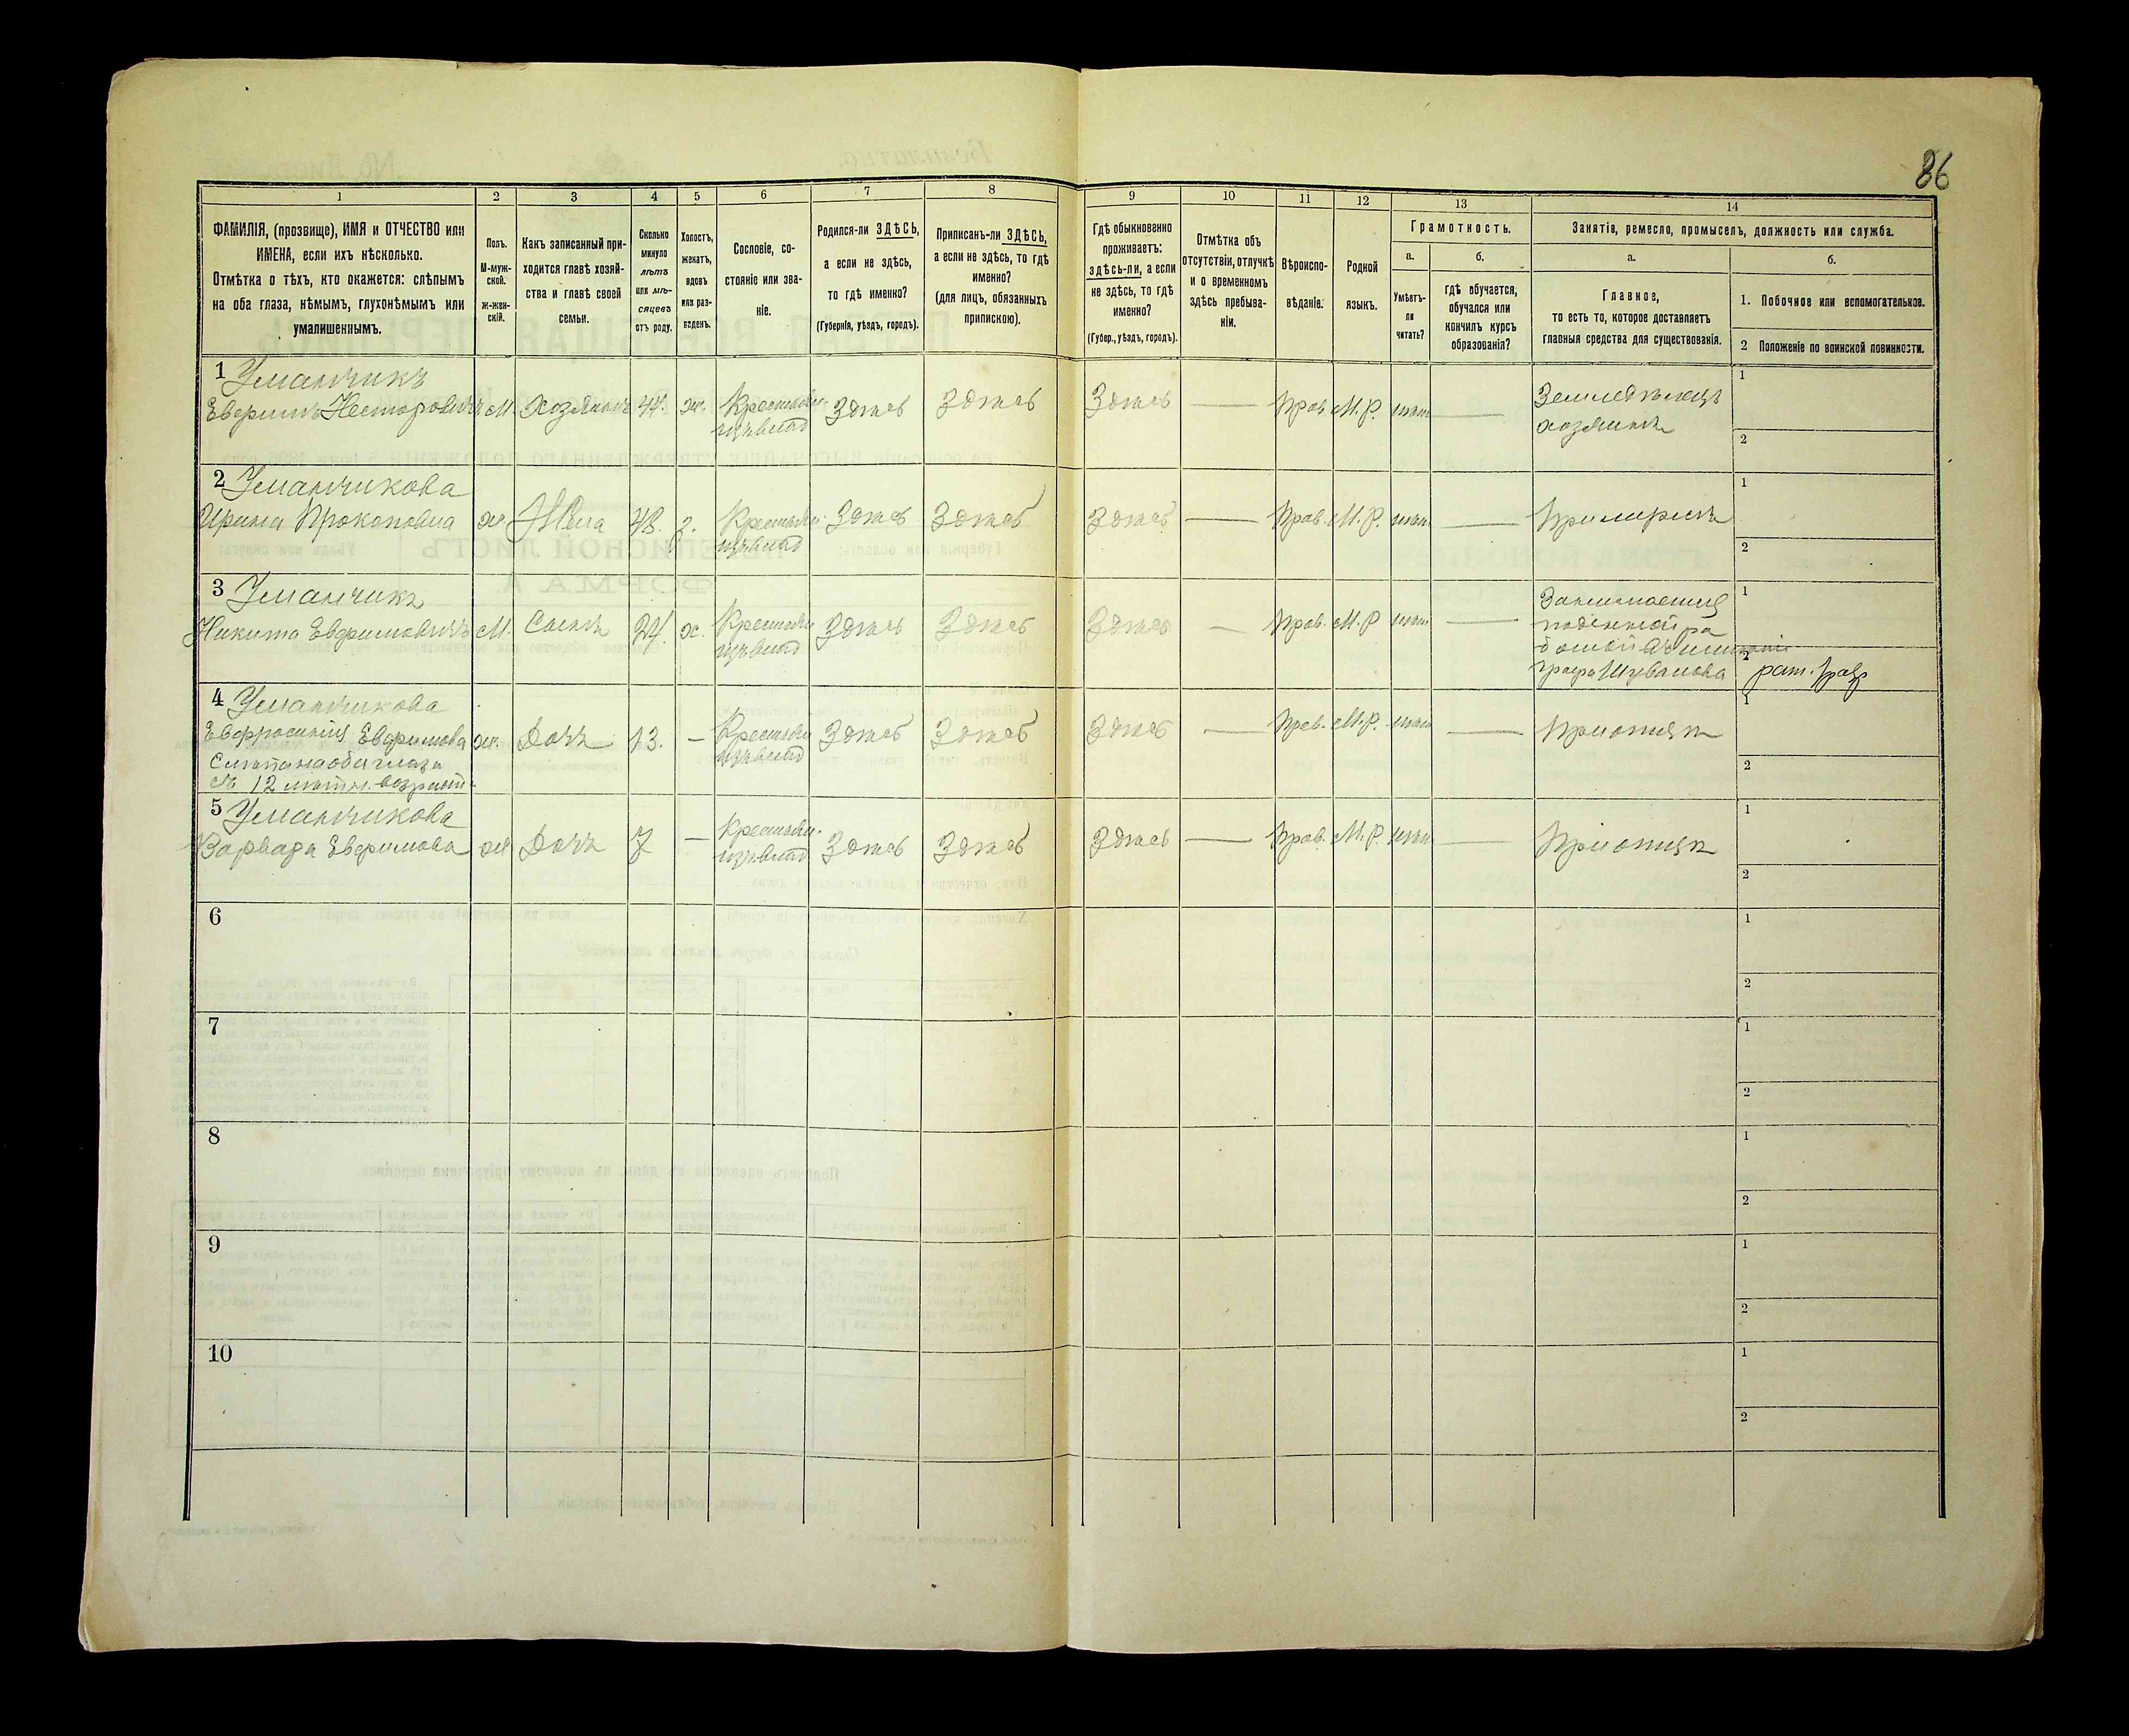 86
1 2 3 4 5 6 7 8 9 10 11 12 13 14
ФАМИЛІЯ, (прозвище), ИМЯ и ОТЧЕСТВО или
ИМЕНА, если ихъ нѣсколько.
Отмѣтка о тѣхъ, кто окажется: слѣпымъ
на оба глаза, нѣмымъ, глухонѣмымъ или
умалишеннымъ.
Полъ.
М-муж-
ской.
ж-жен-
скій.
Какъ записанный при-
ходится главѣ хозяй-
ства и главѣ своей
семьи.
Сколько
минуло
лѣтъ
или мѣ-
сяцевъ
отъ роду.
Холостъ,
женатъ,
вдовъ
или раз-
веденъ.
Сословіе, со-
стояніе или зва-
ніе.
Родился-ли ЗДѢСЬ,
а если не здѣсь,
то гдѣ именно?
(Губернія, уѣздъ, городъ).
Приписанъ-ли ЗДѢСЬ,
а если не здѣсь, то гдѣ
именно?
(для лицъ, обязанныхъ
припискою).
Гдѣ обыкновенно
проживаетъ:
здѣсь-ли, а если
не здѣсь, то гдѣ
именно?
(Губер., уѣздъ, городъ).
Отмѣтка объ
отсутствіи, отлучкѣ
и о временномъ
здѣсь пребыва-
ніи.
Вѣроиспо-
вѣданіе.
Родной
языкъ.
Грамотность.
а.
Умѣетъ-
ли
читать?
б.
гдѣ обучается,
обучался или
кончилъ курсъ
образованія?
Занятія, ремесло, промыселъ, должность или служба.
а.
Главное,
то есть то, которое доставляетъ
главныя средства для существованія.
б.
1. Побочное или вспомогательное.
2 Положеніе по воинской повинности.
1 Уманчикъ
Евфимъ Несторовичъ М. Хозяинъ 47. ж. Крестьян. Здѣсь Здѣсь Здѣсь — Прав. М.Р. нѣт — Земледѣлецъ 1
хозяинъ 2
2 Уманчикова
Ирина Прокоповна ж. Жена 48. з. Крестьян. Здѣсь Здѣсь Здѣсь — Прав. М.Р. нѣт — При мужѣ 1
2
3 Уманчикъ
Никита Евфимовичъ М. Сынъ 24. х. Крестьян Здѣсь Здѣсь Здѣсь — Прав. М.Р нѣт — Занимается 1
поденной ра
ботой
графа Шувалова 2
4 Уманчикова
Евфросинія Евфимова ж. Дочь 13. — Крестьян Здѣсь Здѣсь Здѣсь — Прав. М.Р. нѣт — При отцѣ 1
Слѣпа на оба глаза 2
съ 12 лѣтн. возраст.
5 Уманчикова
Варвара Евфимова ж Дочь 7 — Крестьян. Здѣсь Здѣсь Здѣсь — Прав. М.Р. нѣт — При отцѣ 1
2
6 1
2
7 1
2
8 1
2
9 1
2
10 1
2